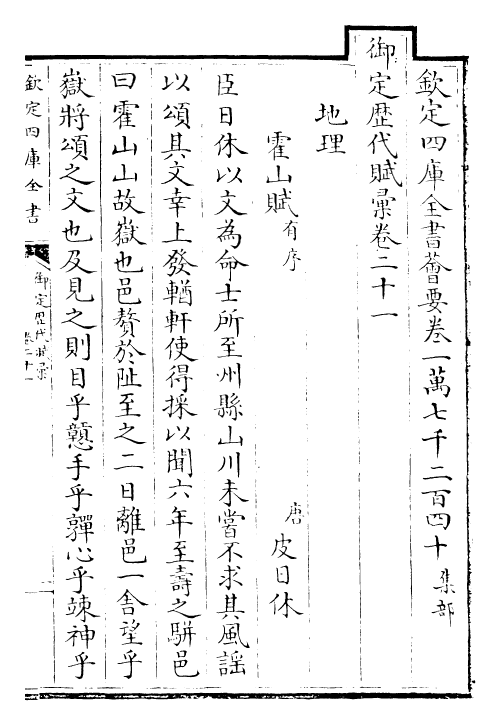 欽定四庫全書薈要卷一萬七千二百四十 集部
御定歴代賦彙卷二十一
地理
霍山賦 有序 唐 皮日休
臣日休以文為命士所至州縣山川未嘗不求其風謡
以頌其文幸上發輶軒使得採以聞六年至壽之駢邑
曰霍山山故嶽也邑贅於趾至之二日離邑一舎望乎
嶽將頌之文也及見之則目乎戇手乎嚲心乎竦神乎
欽定四庫全書
御定歴代賦彙
卷二十一
一